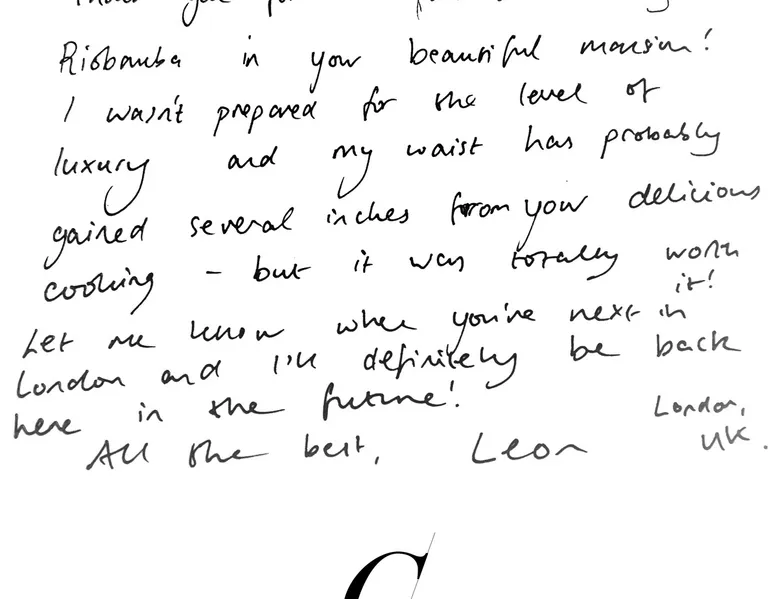 Riobamba in your beautiful mansion!
I wasn't prepared for the level of
luxury and my waist has probably
gained several inches from your delicious
cooking - but it was totally worth
it!
Let me know when you're next in
London and I'll definitely be back
here in the future!
All the best, Leon
London,
UK.